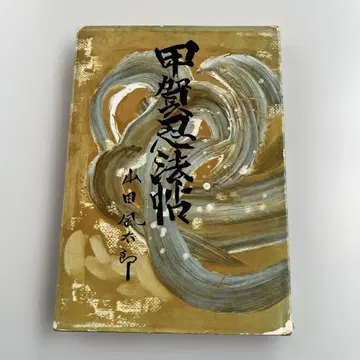 甲賀忍法帖
山田風太郎